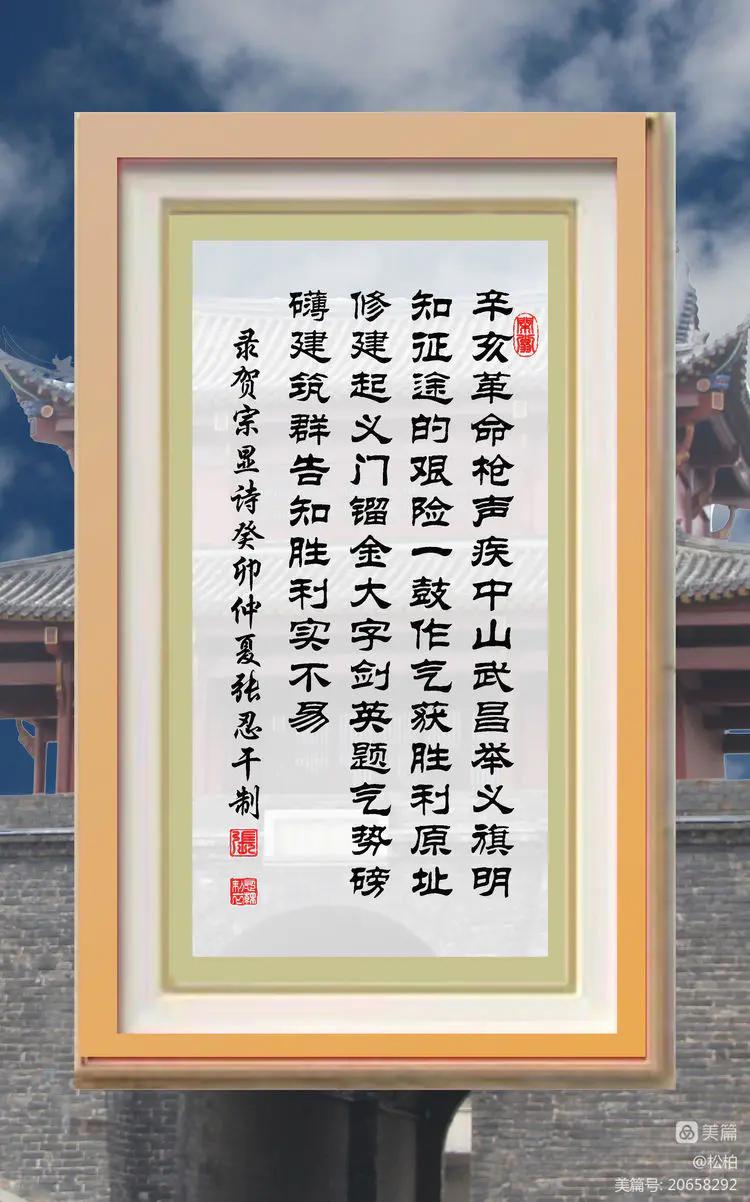 辛亥革命枪声疾中山武昌举义旗明
知征途的艰险一鼓作气获胜利原址
修建起义门镏金大字剑英题气势磅
礴建筑群告知胜利实不易
录贺宗显诗癸卯仲夏张忍干制
張
美篇
@松柏
美篇号: 20658292